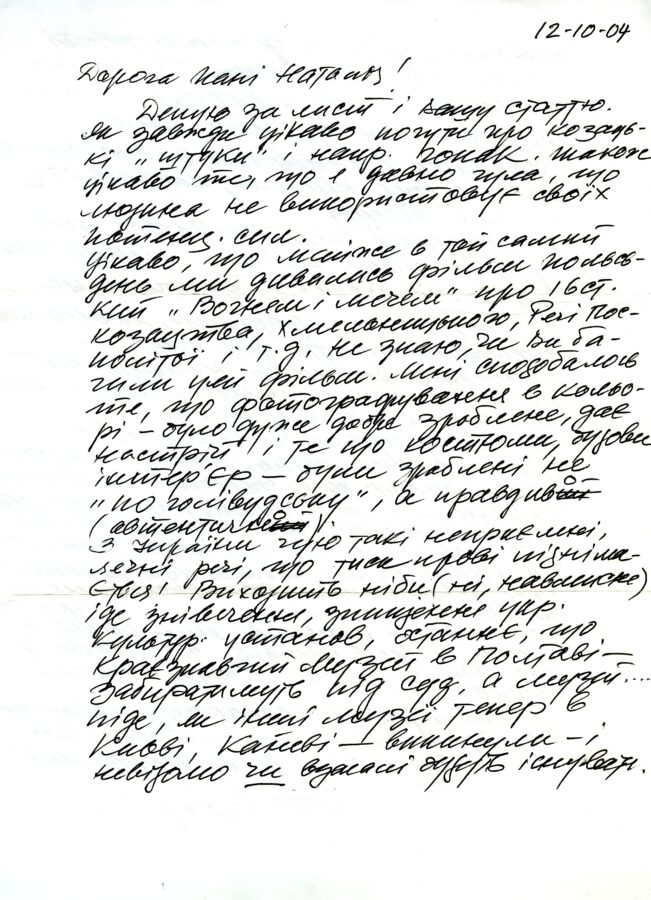 12-10-04
Дорога пані Наталю!
Дякую за лист і Вашу статтю.
Як завжди цікаво почути про козаць-
кі „штуки" і напр. гопак. Також
цікаво те, що я давно чула, що
людина не використовує своїх
потенц. сил.
Цікаво, що майже в той самий
день ми дивились фільм польсь-
кий „Вогнем і мечем" про 16 ст.
козацтва, Хмельницького, Речі Пос-
политої і т.д. Не знаю, чи Ви ба-
чили цей фільм. Мені сподобалось
те, що фотографування в кольо-
рі – було дуже добре зроблене, дає
настрій і те що костюми, будови
інтер'єр – були зроблені не
„по голівудському", а правдиво
(автентично).
З України чую такі неприємні,
речі, що тиск крові підніма-
ється! Виходить ніби (ні, навмисне)
іде знівечення, знищення укр.
культур. установ, останнє, що
краєзнавчий музей в Полтаві –
забиратимуть під суд, а музей....
піде, як інші музеї тепер в
Києві, Каневі – викинули – і
невідомо чи взагалі будуть існувати.